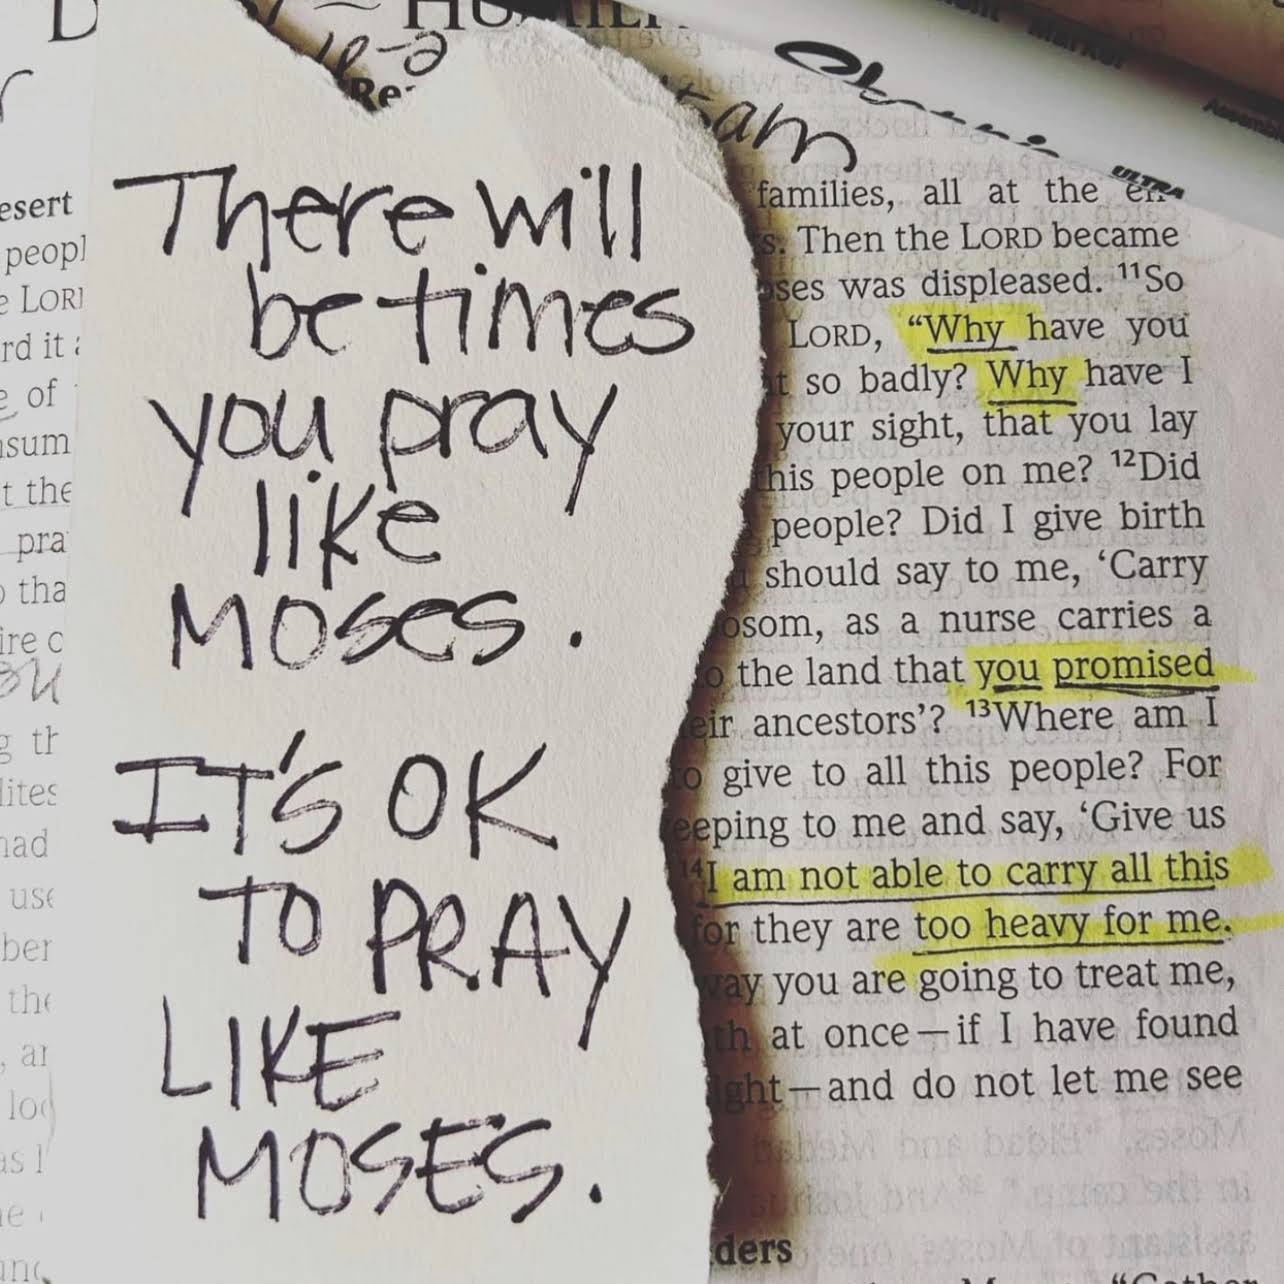 There will
be times
you pray
like
MOSES.
IT'S OK
TO PRAY
LIKE
MOSES.
HUMILI
am
ULTRA
Marker
families, all at the
Then the LORD became
ses was displeased. ¹¹So
LORD, “Why have you
so badly? Why have I
your sight, that you lay
his people on me? ¹²Did
people? Did I give birth
should say to me, ‘Carry
osom, as a nurse carries a
the land that you promised
eir ancestors’? ¹³Where am I
give to all this people? For
eeping to me and say, ‘Give us
¹⁴I am not able to carry all this
for they are too heavy for me.
way you are going to treat me,
th at once—if I have found
ght—and do not let me see
ders
“Gather
esert
peopl
LORD
rd it
of
nsum
t the
pra
tha
ire
g th
lites
had
use
ber
the